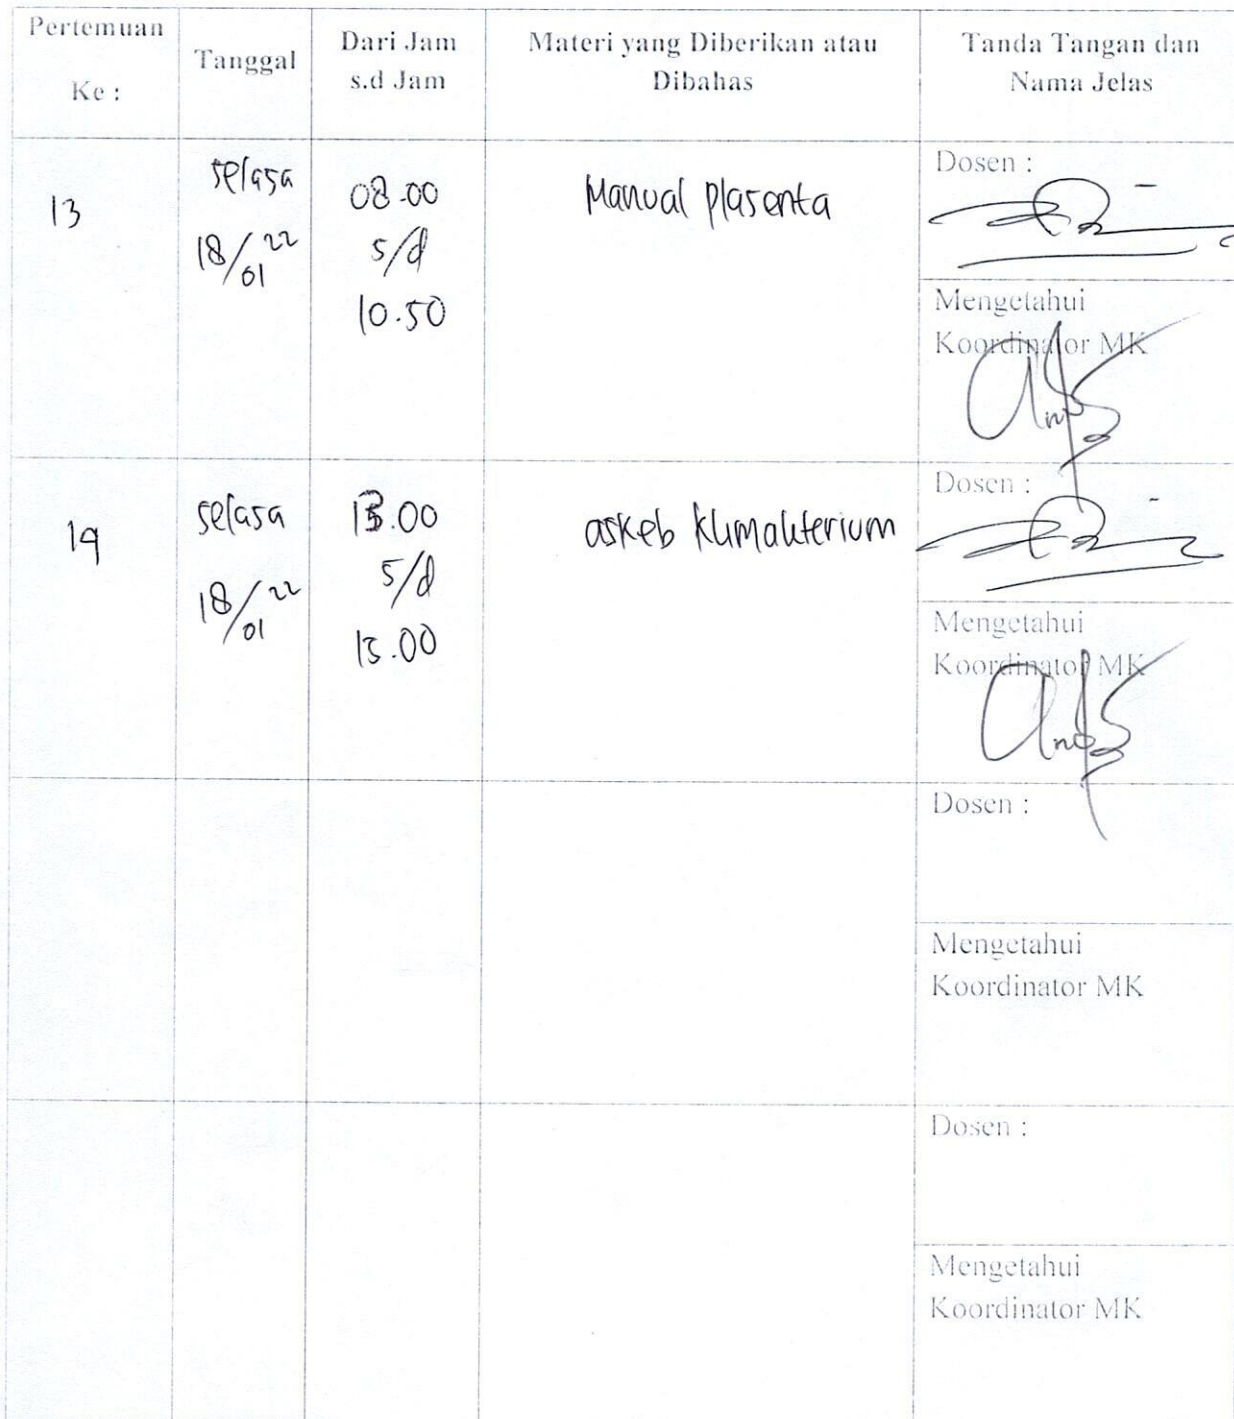 Pertemuan
Ke :
Tanggal
Dari Jam
s.d Jam
Materi yang Diberikan atau
Dibahas
Tanda Tangan dan
Nama Jelas
13
selasa
18/01 22
08.00
s/d
10.50
Manual plasenta
Dosen :
Mengetahui
Koordinator MK
14
selasa
18/01 22
13.00
s/d
15.00
askeb klimakterium
Dosen :
Mengetahui
Koordinator MK
Dosen :
Mengetahui
Koordinator MK
Dosen :
Mengetahui
Koordinator MK